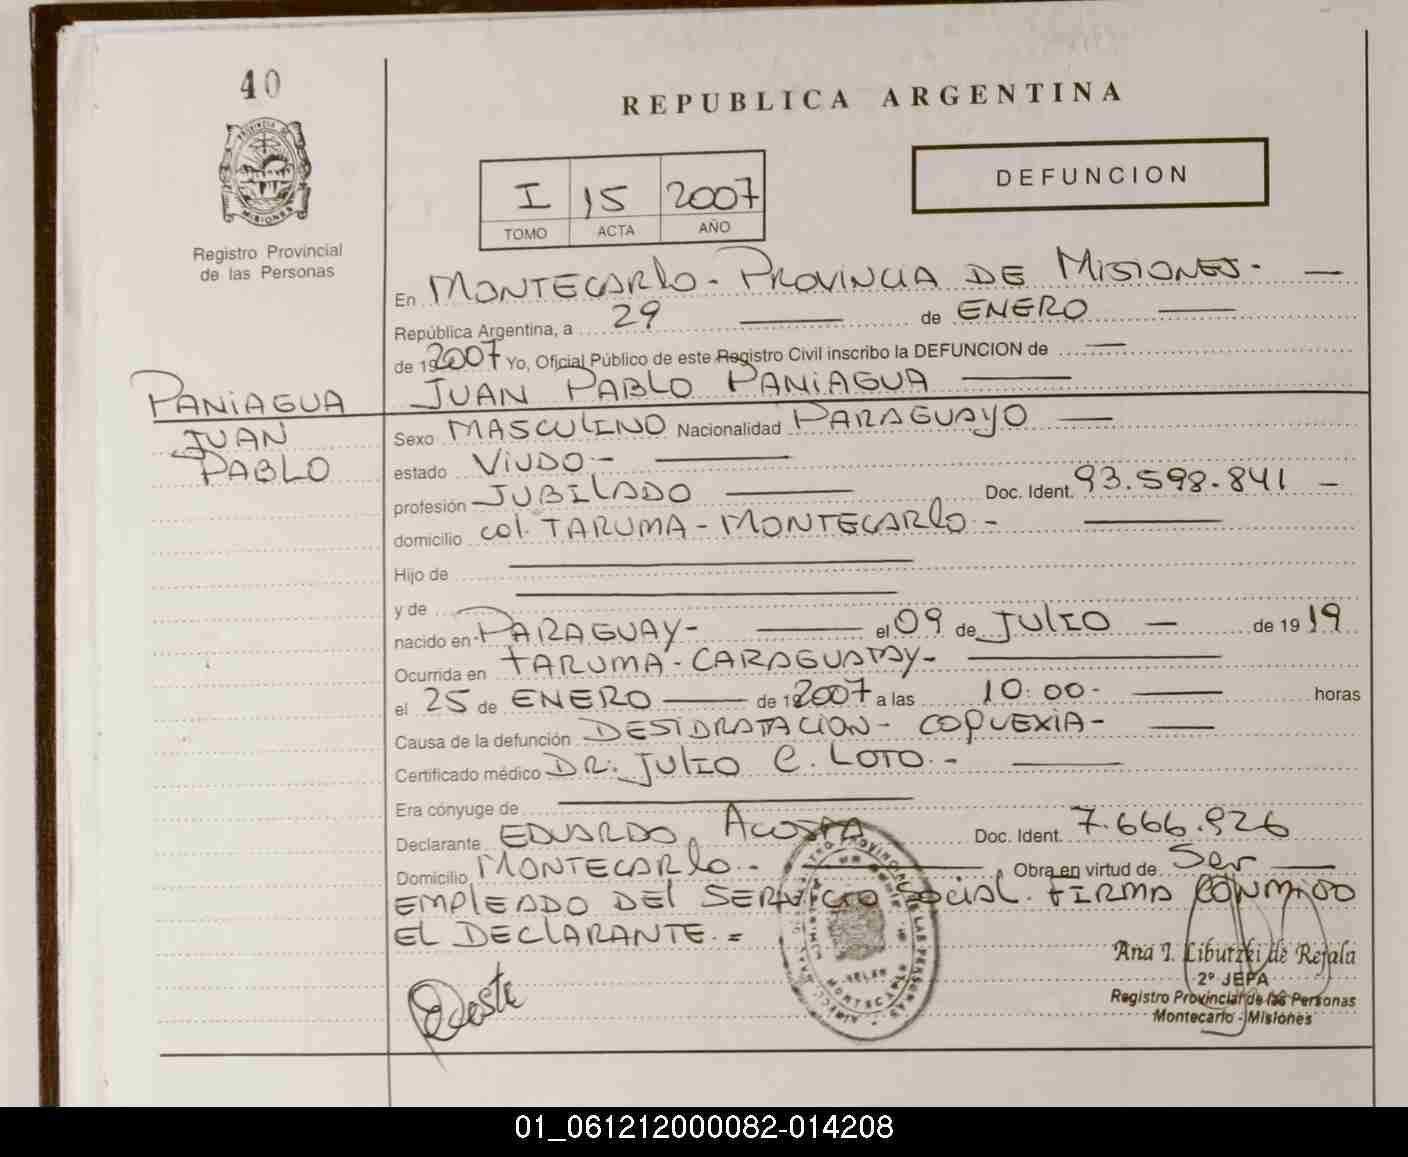 40
REPUBLICA ARGENTINA
PROVINCIA DE
MISIONES
Registro Provincial
de las Personas
DEFUNCION
I 15 2007
TOMO ACTA AÑO
En MONTECARLO - PROVINCIA DE MISIONES. —
República Argentina, a 29 — de ENERO —
de 192007 Yo, Oficial Público de este Registro Civil inscribo la DEFUNCION de —
JUAN PABLO PANIAGUA —
PANIAGUA
JUAN
PABLO
Sexo MASCULINO Nacionalidad PARAGUAYO —
estado VIUDO - —
profesión JUBILADO — Doc. Ident. 93.598.841 -
domicilio col. TARUMA - MONTECARLO - —
Hijo de —
y de —
nacido en PARAGUAY - — el 09 de JULIO — de 1919
Ocurrida en TARUMA - CARAGUATAY - —
el 25 de ENERO — de 192007 a las 10:00 - — horas
Causa de la defunción DESIDRATACION - COQUEXIA - —
Certificado médico DR. JULIO C. LOTO. - —
Era cónyuge de —
Declarante EDUARDO ACOSTA Doc. Ident. 7.666.926
Domicilio MONTECARLO - — Obra en virtud de Ser —
EMPLEADO DEL SERVICIO SOCIAL. FIRMA CONMIGO
EL DECLARANTE. =
Ana I. Libutzki de Rejala
2º JEPA
Registro Provincial de las Personas
Montecarlo - Misiones
01_061212000082-014208